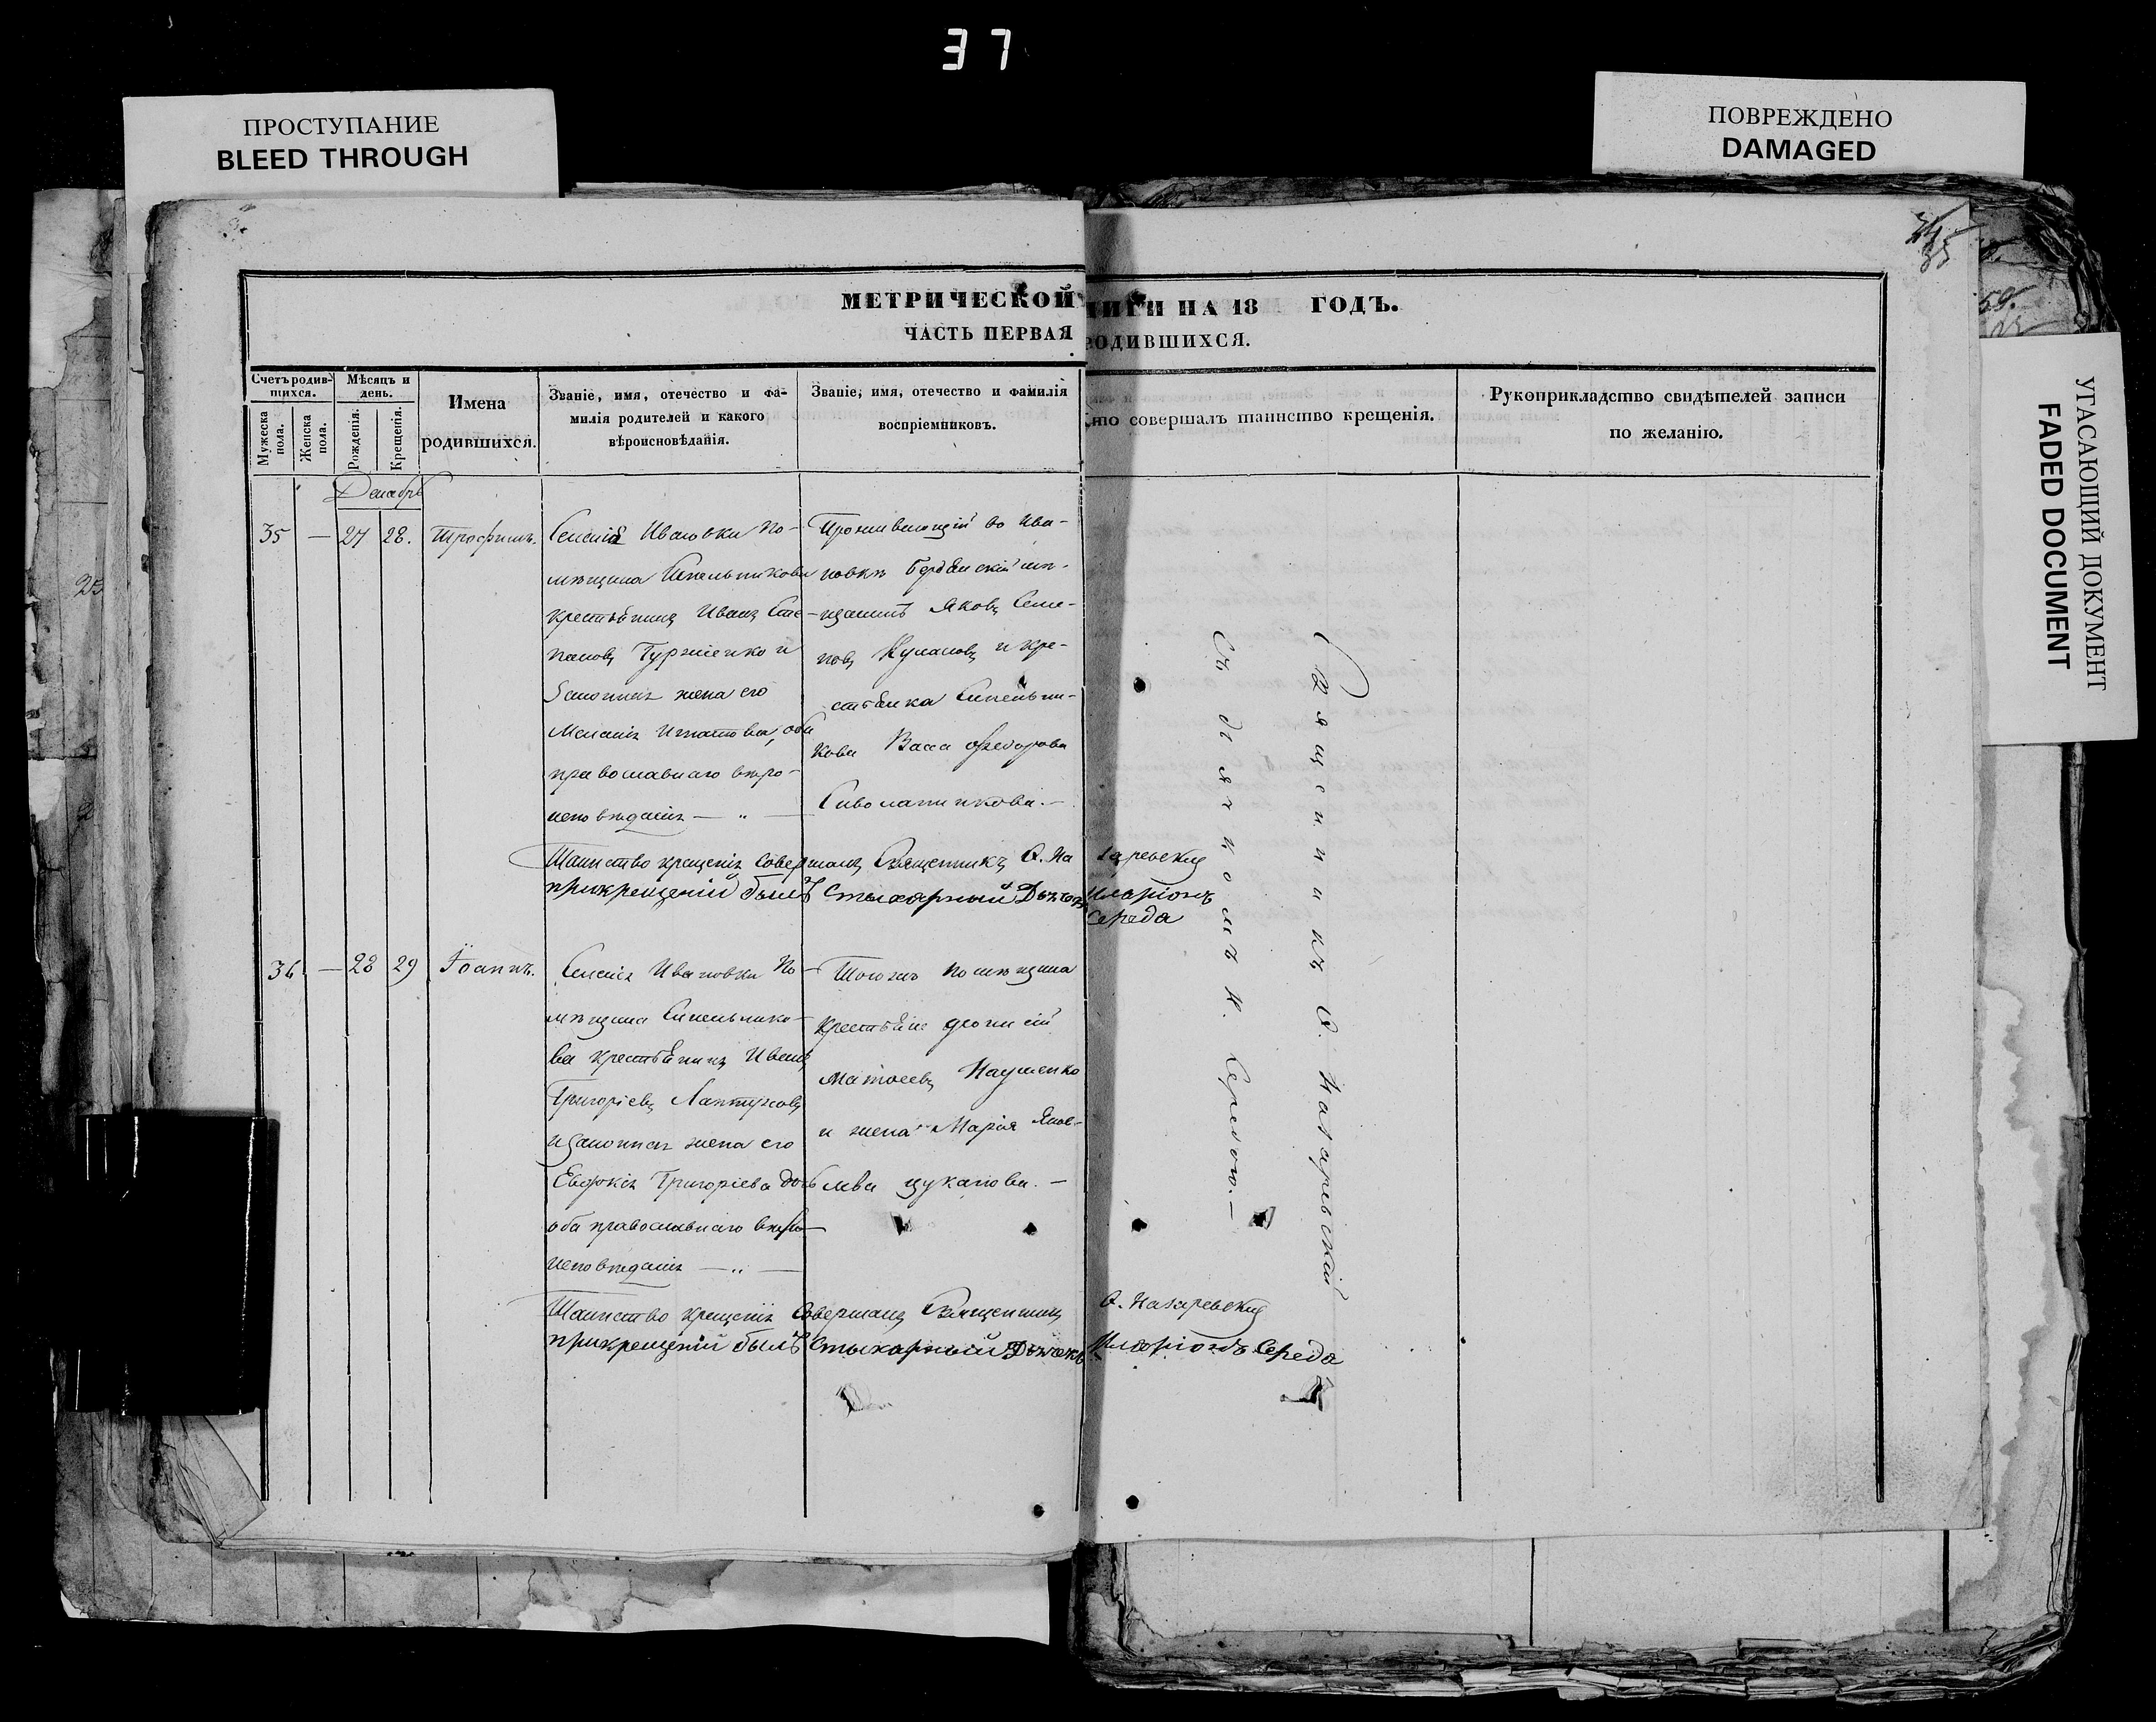 37
ПРОСТУПАНИЕ
BLEED THROUGH
ПОВРЕЖДЕНО
DAMAGED
УГАСАЮЩИЙ ДОКУМЕНТ
FADED DOCUMENT
35
59.
МЕТРИЧЕСКОЙ КНИГИ НА 18 ГОДЪ.
ЧАСТЬ ПЕРВАЯ РОДИВШИХСЯ.
Счетъ родив-
шихся.
Мужеска
пола.
Женска
пола.
Мѣсяцъ и
день.
Рожденія.
Крещенія.
Имена
родившихся.
Званіе, имя, отечество и фа-
милія родителей и какого
вѣроисповѣданія.
Званіе, имя, отечество и фамилія
воспріемниковъ.
Кто совершалъ таинство крещенія.
Рукоприкладство свидѣтелей записи
по желанію.
Декабрь
35 — 27 28. Трофимъ.
Селенія Ивановки по-
мѣщика Синельникова
крестьянинъ Иванъ Сте-
пановъ и
законная жена его
Меланія Игнатова, оба
православнаго вѣро-
исповѣданія — „ —
Проживающій во Ива-
новкѣ Бердянскій мѣ-
щанинъ Яковъ Семе-
новъ и кре-
стьянка Синельни-
кова Васса Федорова
Таинство крещенія совершалъ Священникъ Ѳ. Назаревскій
при крещеніи былъ Стихарный Дьячокъ Иларіонъ
Середа
36 — 28 29 Іоаннъ.
Селенія Ивановки по-
мѣщика Синельнико-
ва крестьянинъ Иванъ
Григоріевъ
и законная жена его
Евдокія Григоріева дочь
оба православнаго вѣро-
исповѣданія — „ —
Тогожъ помѣщика
крестьяне
Матвеевъ Науменко
и жена Марія Яков-
лева Цуканова. —
Таинство крещенія совершалъ Священникъ Ѳ. Назаревскій
при крещеніи былъ Стихарный Дьячокъ Иларіонъ Середа
Священникъ Ѳ. Назаревскій
Съ Дьячкомъ И. Середою. —